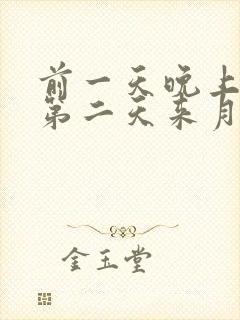 前一天晚上
第二天来月
金玉堂